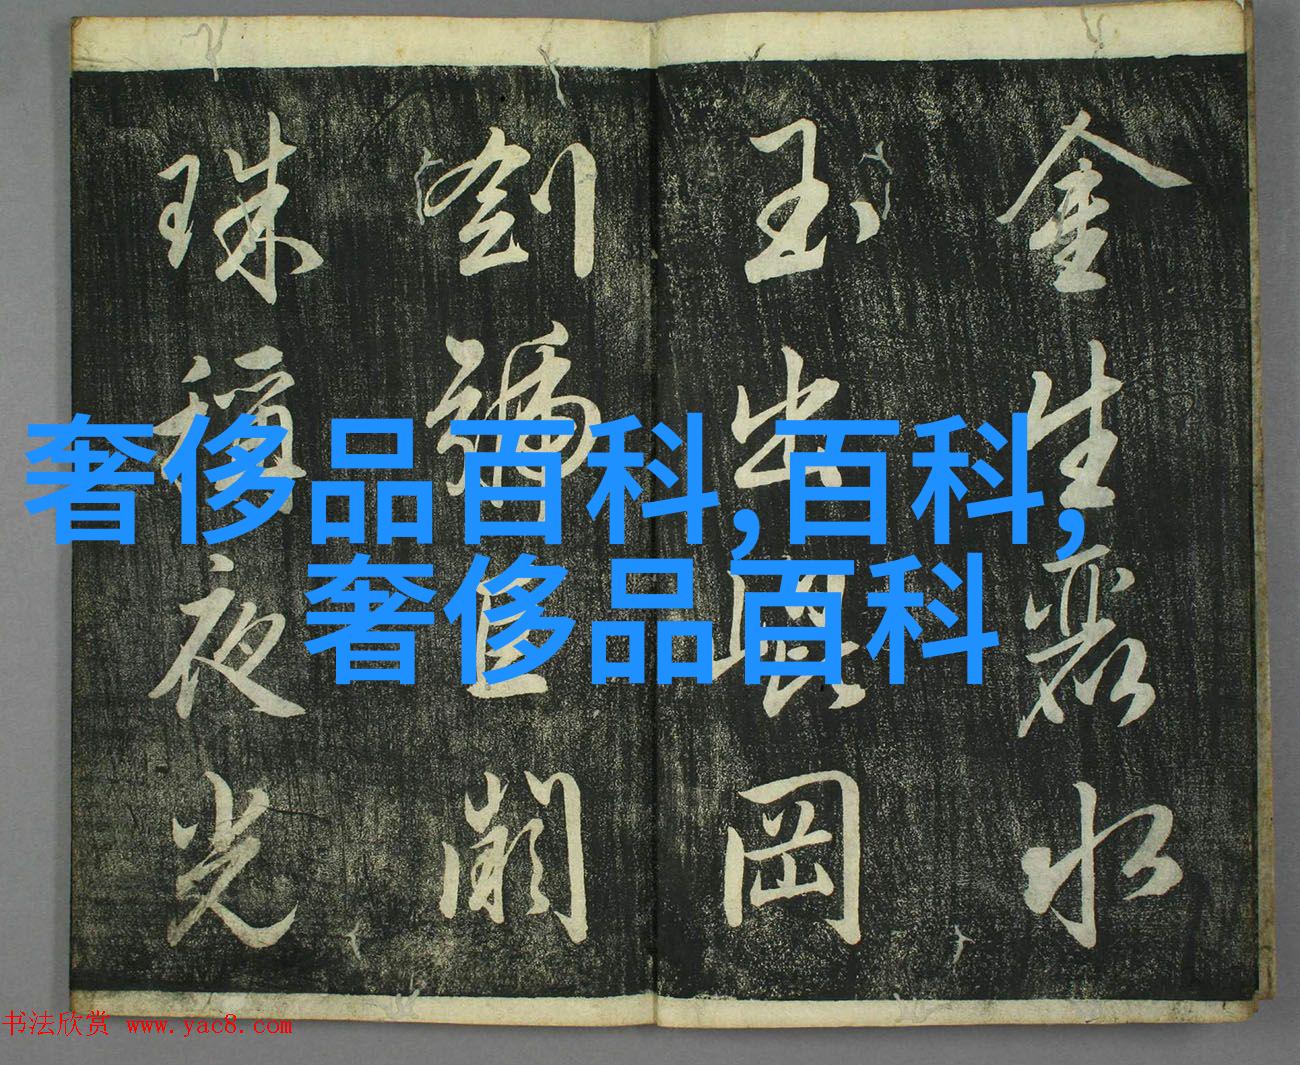 金生麗水
玉出崐岡
劍號巨闕
珠稱夜光
奢侈品百科,百科,
奢侈品百科
书法欣赏 www.yac8.com